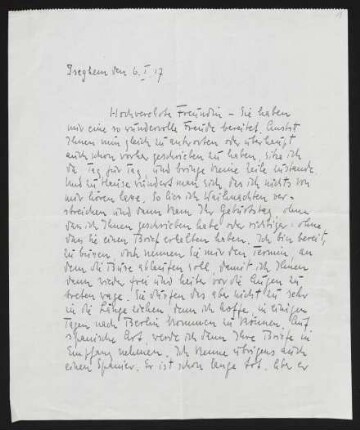 den 6. I. 17
Hochverehrte Freundin – Sie haben
mir eine so wundervolle Freude bereitet. Anstatt
Ihnen nun gleich zu antworten oder überhaupt
auch schon vorher geschrieben zu haben, sitze ich
da Tag für Tag und bringe keine Zeile zustande
Und zu Hause wundert man sich, das ich nichts von
mir hören lasse. So liess ich Weihnachten ver-
streichen und dann kam Ihr Geburtstag, ohne
das ich Ihnen geschrieben habe oder richtiger – ohne
das Sie einen Brief erhalten haben. Ich bin bereit
zu büssen, doch nennen Sie mir den Termin, an
dem die Busse ablaufen soll, damit ich Ihnen
dann wieder frei und heiter vor die Augen zu
treten wage. Sie dürfen das aber nicht zu sehr
in die Länge ziehen denn ich hoffe, in einigen
Tagen nach Berlin kommen zu können. Auf
spanische Art, werde ich dann Ihre Briefe in
Empfang nehmen. Ich kenne übrigens auch
einen Spanier. Er ist schon lange tot. Aber er